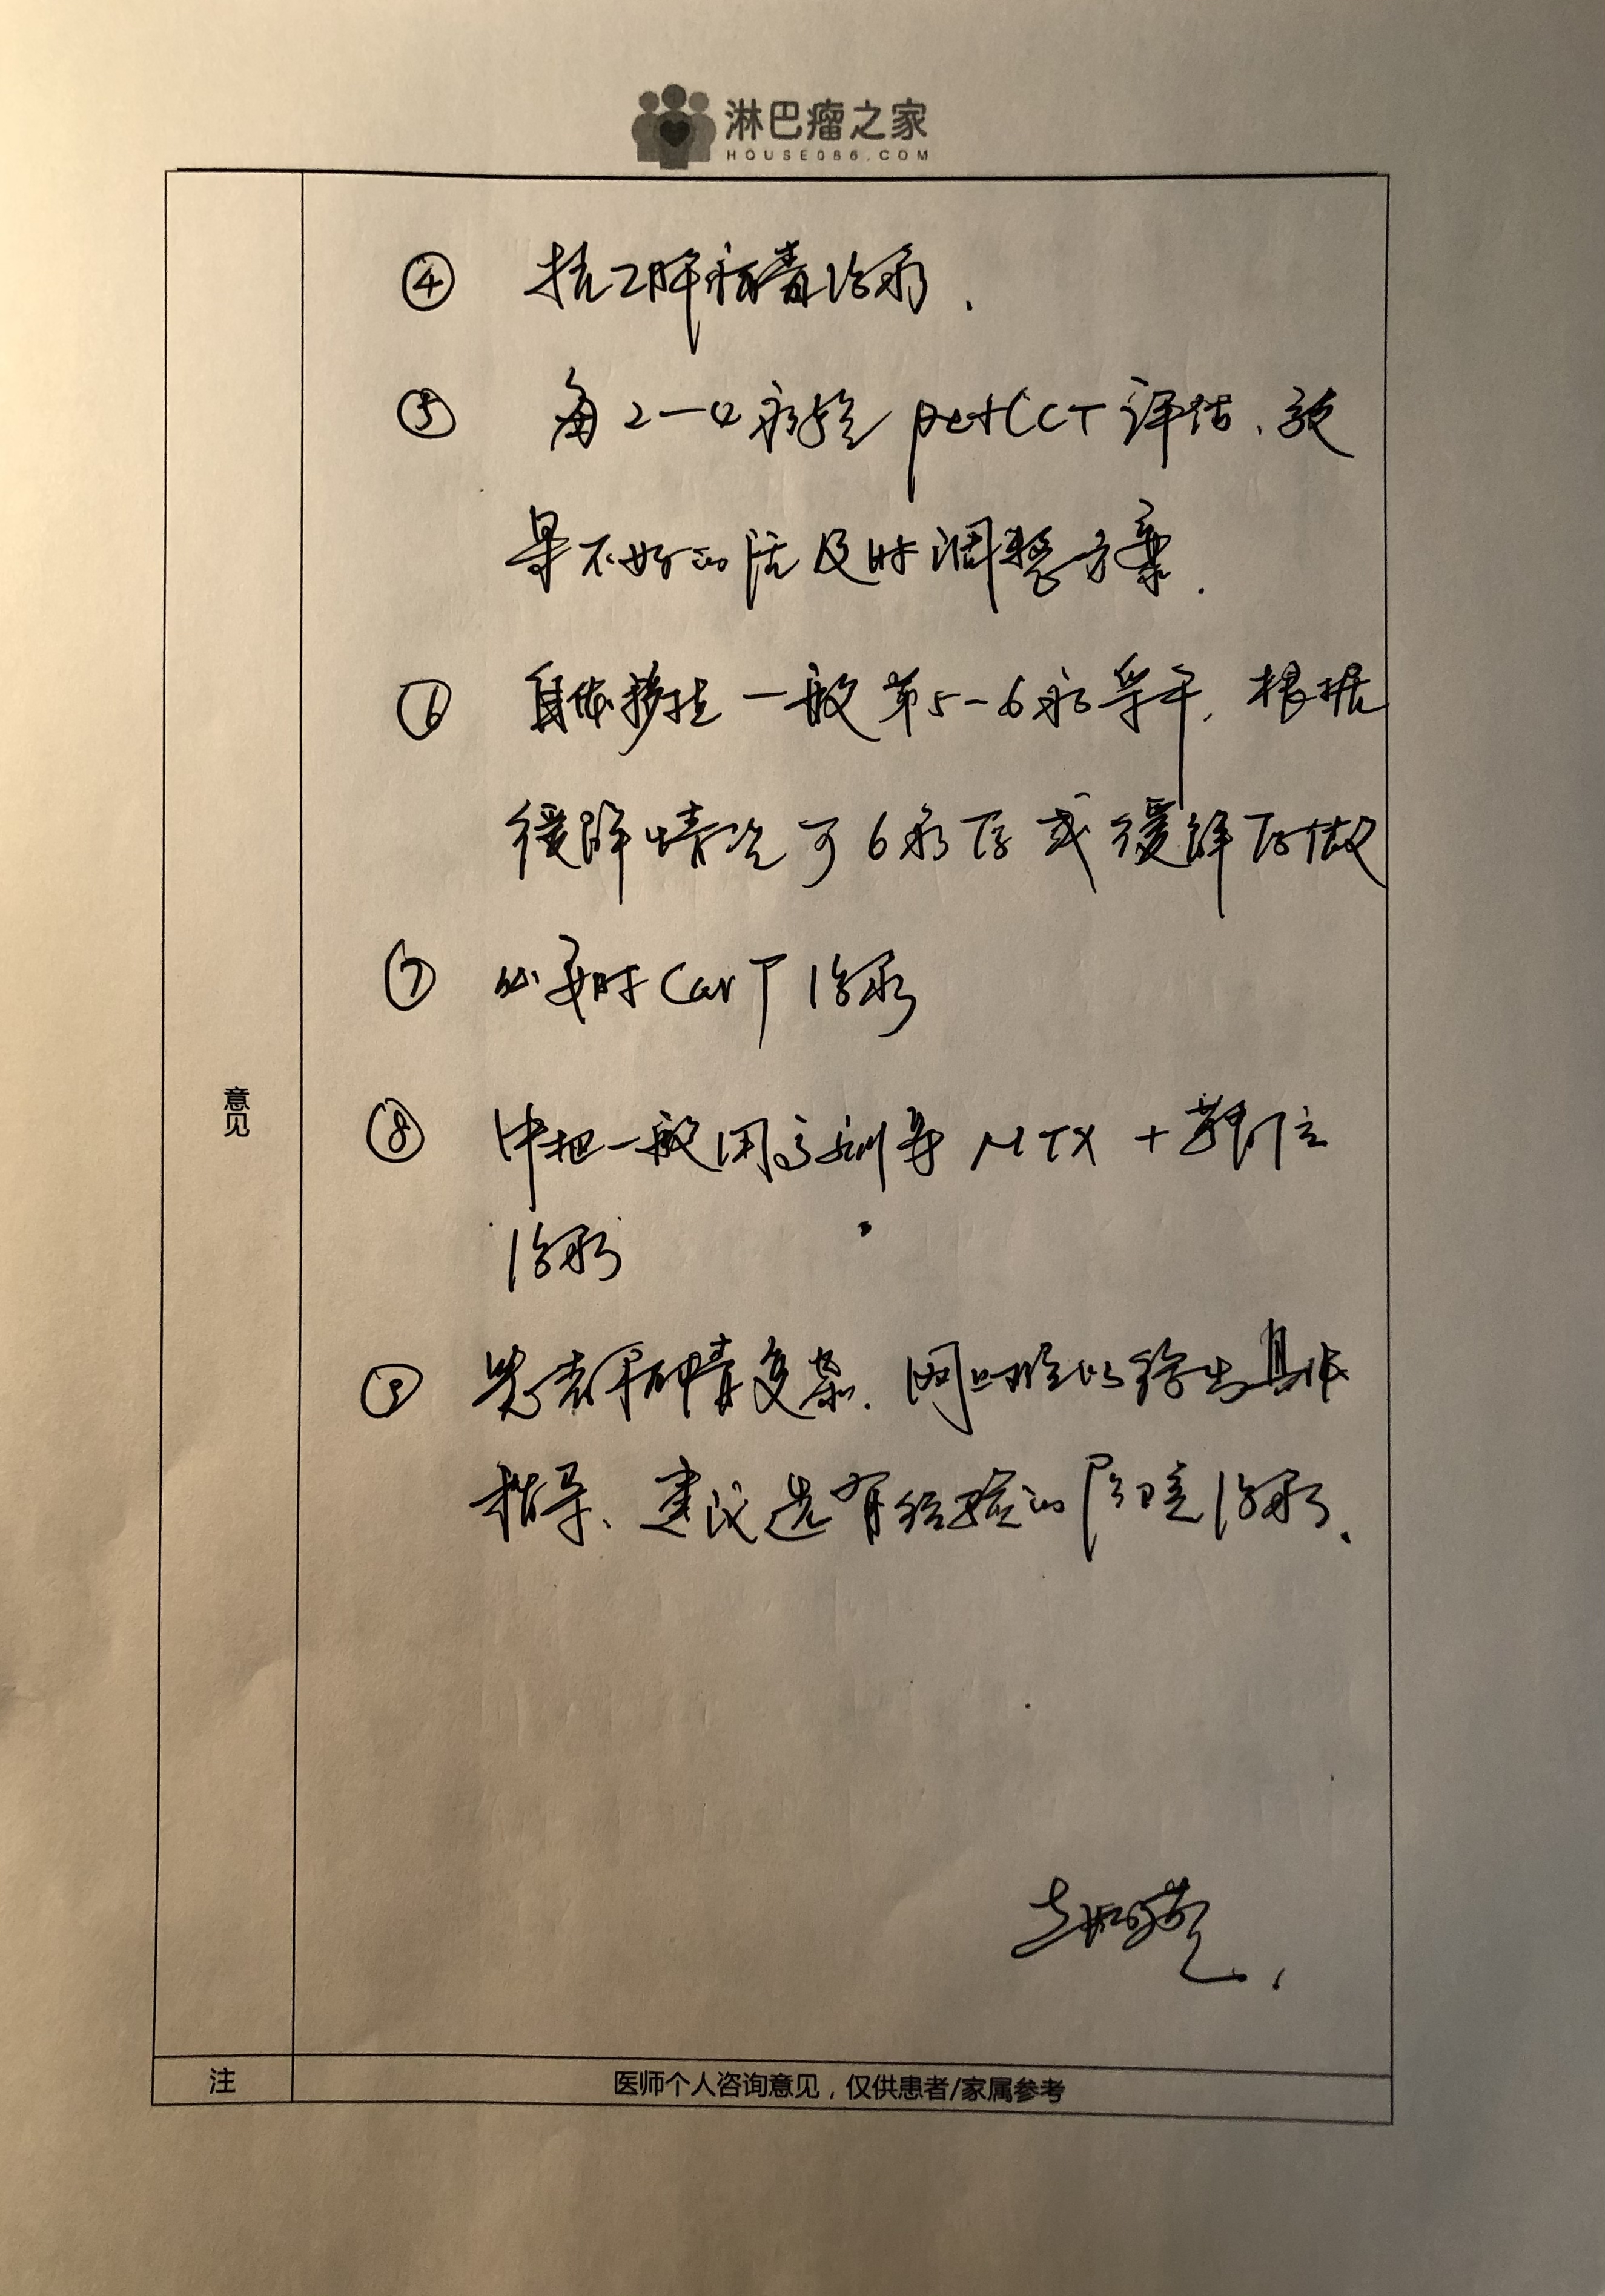 淋巴瘤之家
HOUSE086.COM
④ 抗乙肝病毒治疗.
⑤ 每2-4疗程 petCCT 评估、效
果不好的话及时调整方案.
⑥ 自体移植一般第5-6疗采干, 根据
缓解情况可6疗后或缓解后做
⑦ 必要时CarT治疗
意见
⑧ 中枢一般用高剂量 MTX + 鞘注
治疗
⑨ 患者病情复杂. 网上难以给出具体
指导、建议选有经验的医院治疗.
注
医师个人咨询意见，仅供患者/家属参考